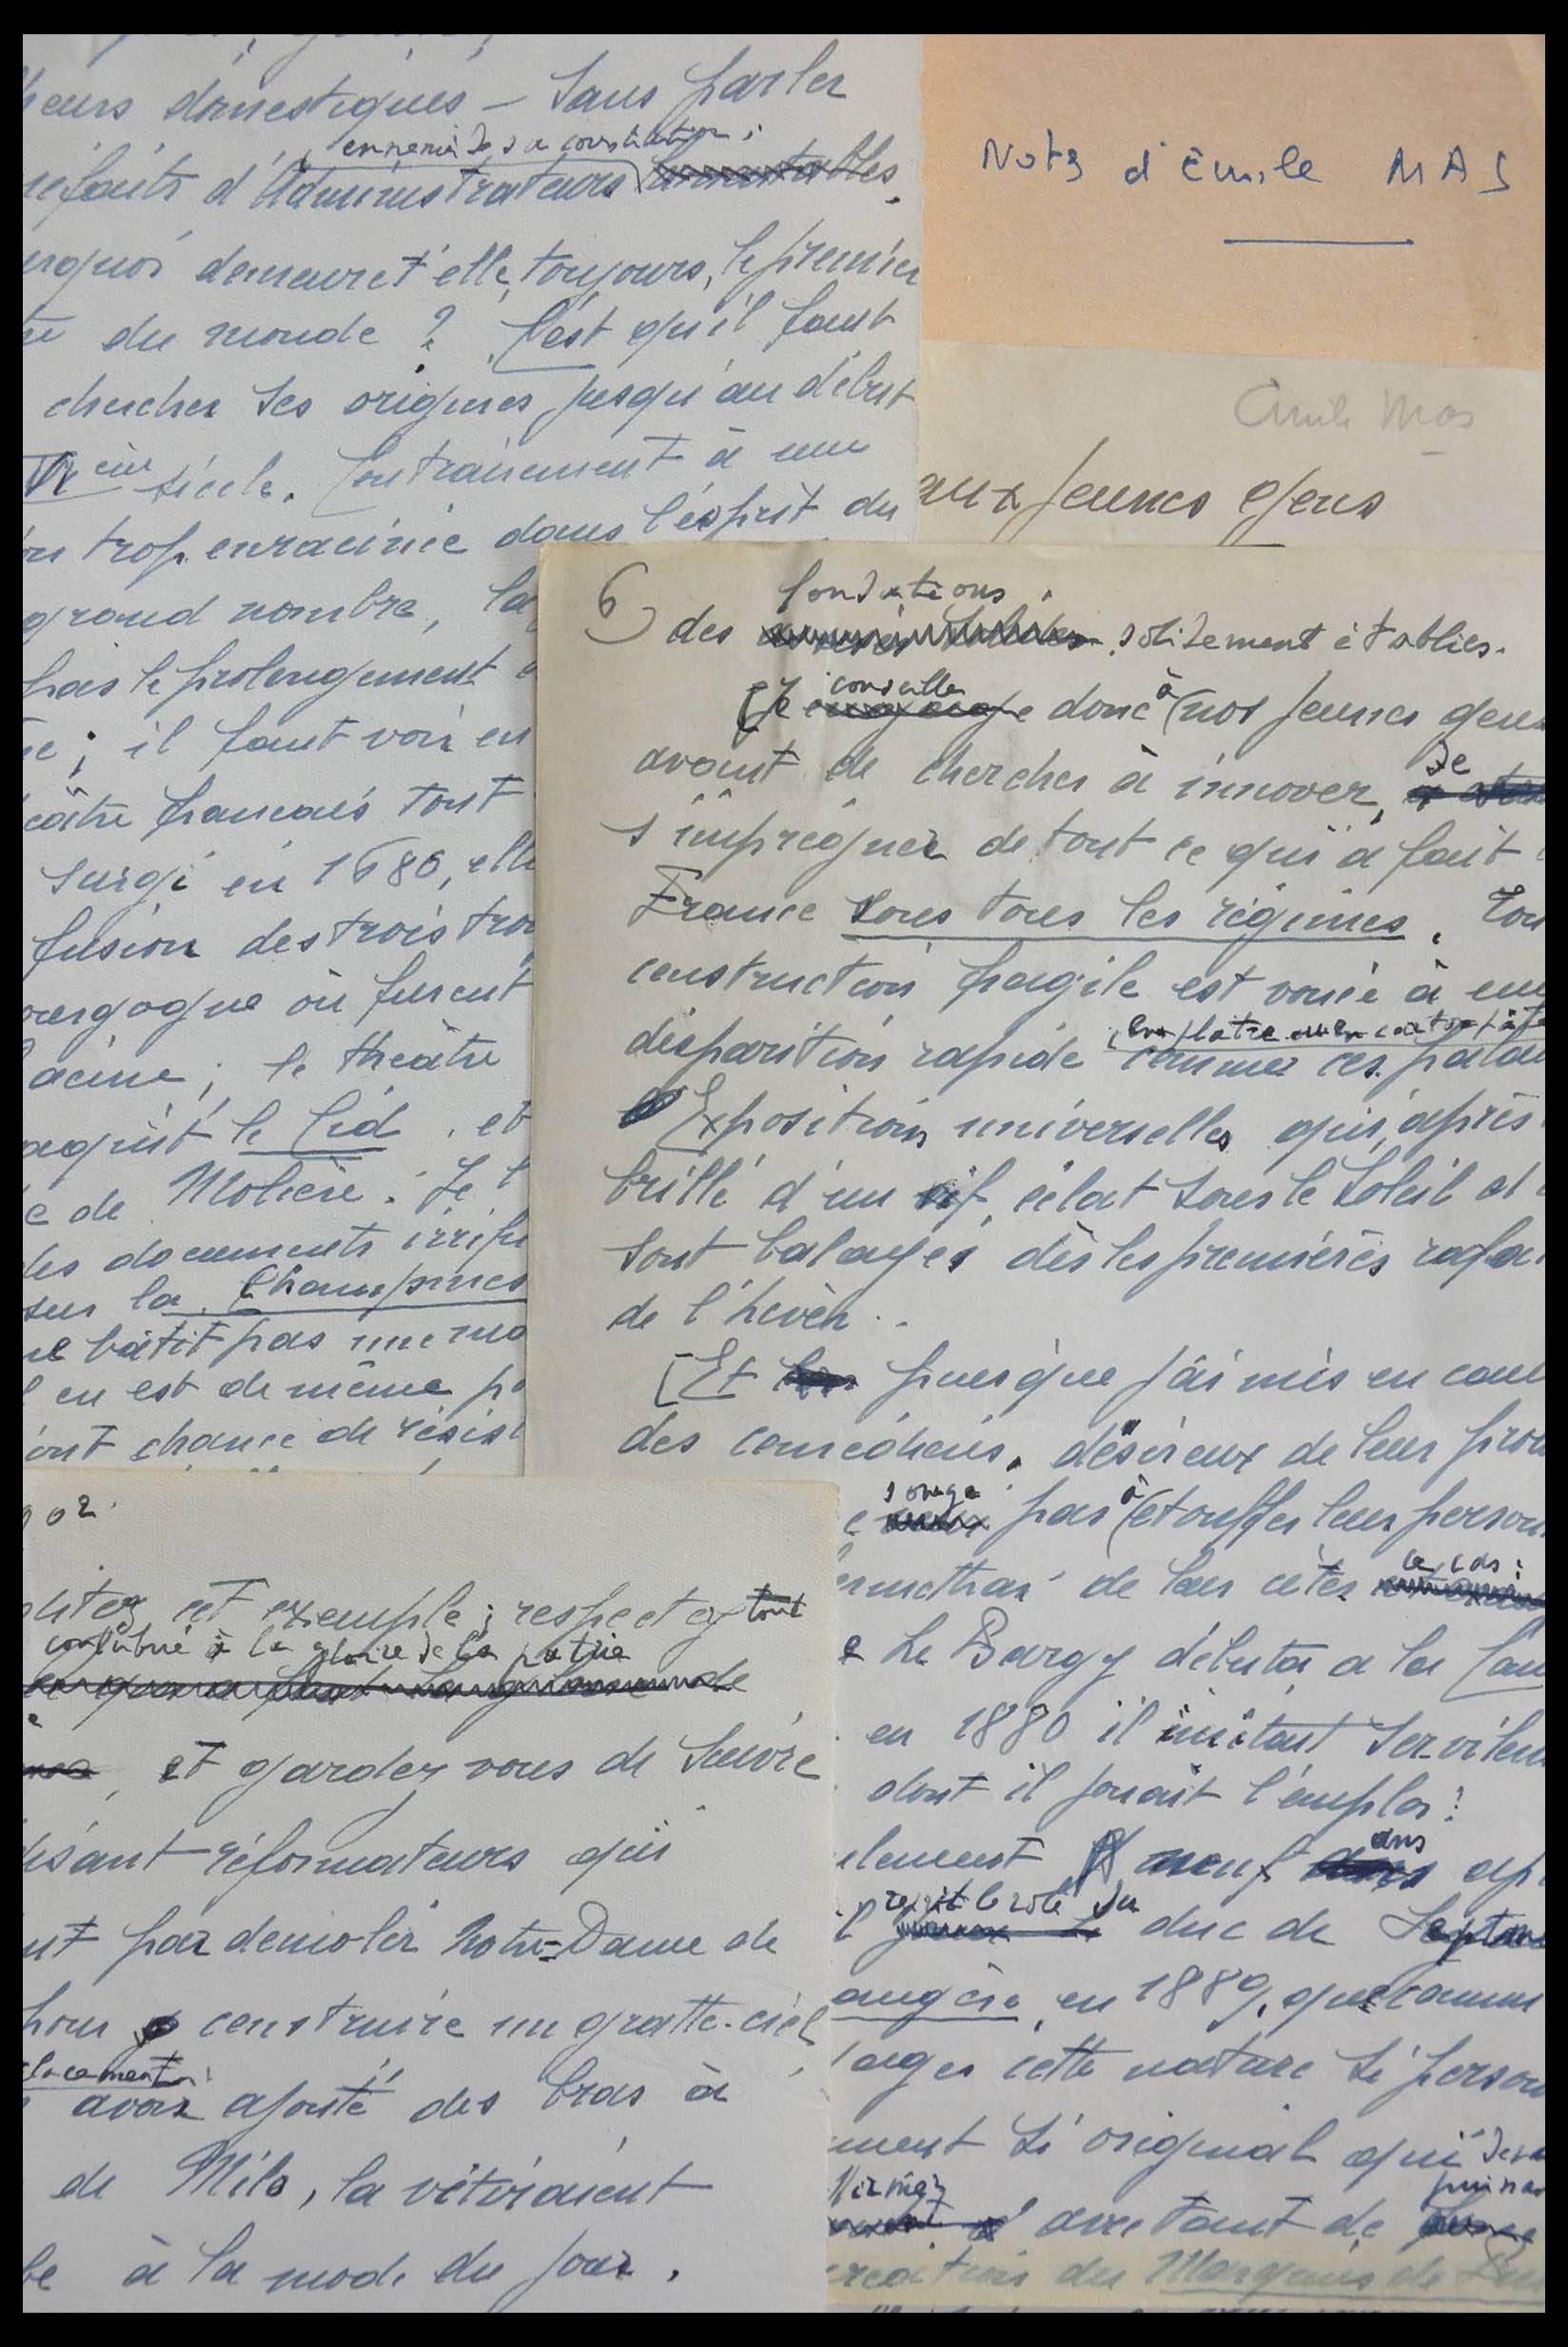 heurs domestiques – Sans parler
ennemis de sa constitution ;
méfaits d'Administrateurs
demeure t'elle, toujours, le premier
du monde ? C'est qu'il faut
chercher ses origines jusqu'au début
siècle. Contrairement à une
trop enracinée dans l'esprit du
grand nombre, la
pas le prolongement
; il faut voir en
français tout
surgi en 1680, elle
fusion des trois trou
ourgogne où furent
acine ; le théâtre
naquit le Cid, et
e de Molière. Je
des documents irréfu
sur la Champmes
ne bâtit pas une ma
l en est de même p
ont chance de résis
Notes d'Emile MAS
Emile Mas
aux jeunes gens
6)
fondations
des solidement établies.
conseille
[Je engage donc à nos jeunes gens
avant de chercher à innover, de
s'imprégner de tout ce qui a fait
France sous tous les régimes. Tou
construction fragile est vouée à une
en plâtre ou en carton pâte
disparition rapide comme ces palai
Expositions universelles qui, après
brillé d'un vif éclat sous le soleil d'
sont balayés dès les premières rafa
de l'hiver..
[Et puisque j'ai mis en cau
des comédiens, désireux de leur prou
songe
pas à étouffer leur person
le cas :
de leur citer
Le Bargy débuta à la Com
en 1880 il imitait servilem
dont il jouait l'emploi !
ans
neuf ap
reprit le rôle du
duc de Septmo
angère, en 1889, que comm
cette nature si person
ment si original qui deva
puissan
avec tant de
création du Marquis de
902.
cet exemple ; respectez tout
contribué à la gloire de la patrie
et gardez vous de suivre
disant réformateurs qui
par démolir Notre-Dame de
pour construire un gratte-ciel
placement ;
avoir ajouté des bras à
de Milo, la vêtiraient
be à la mode du jour.